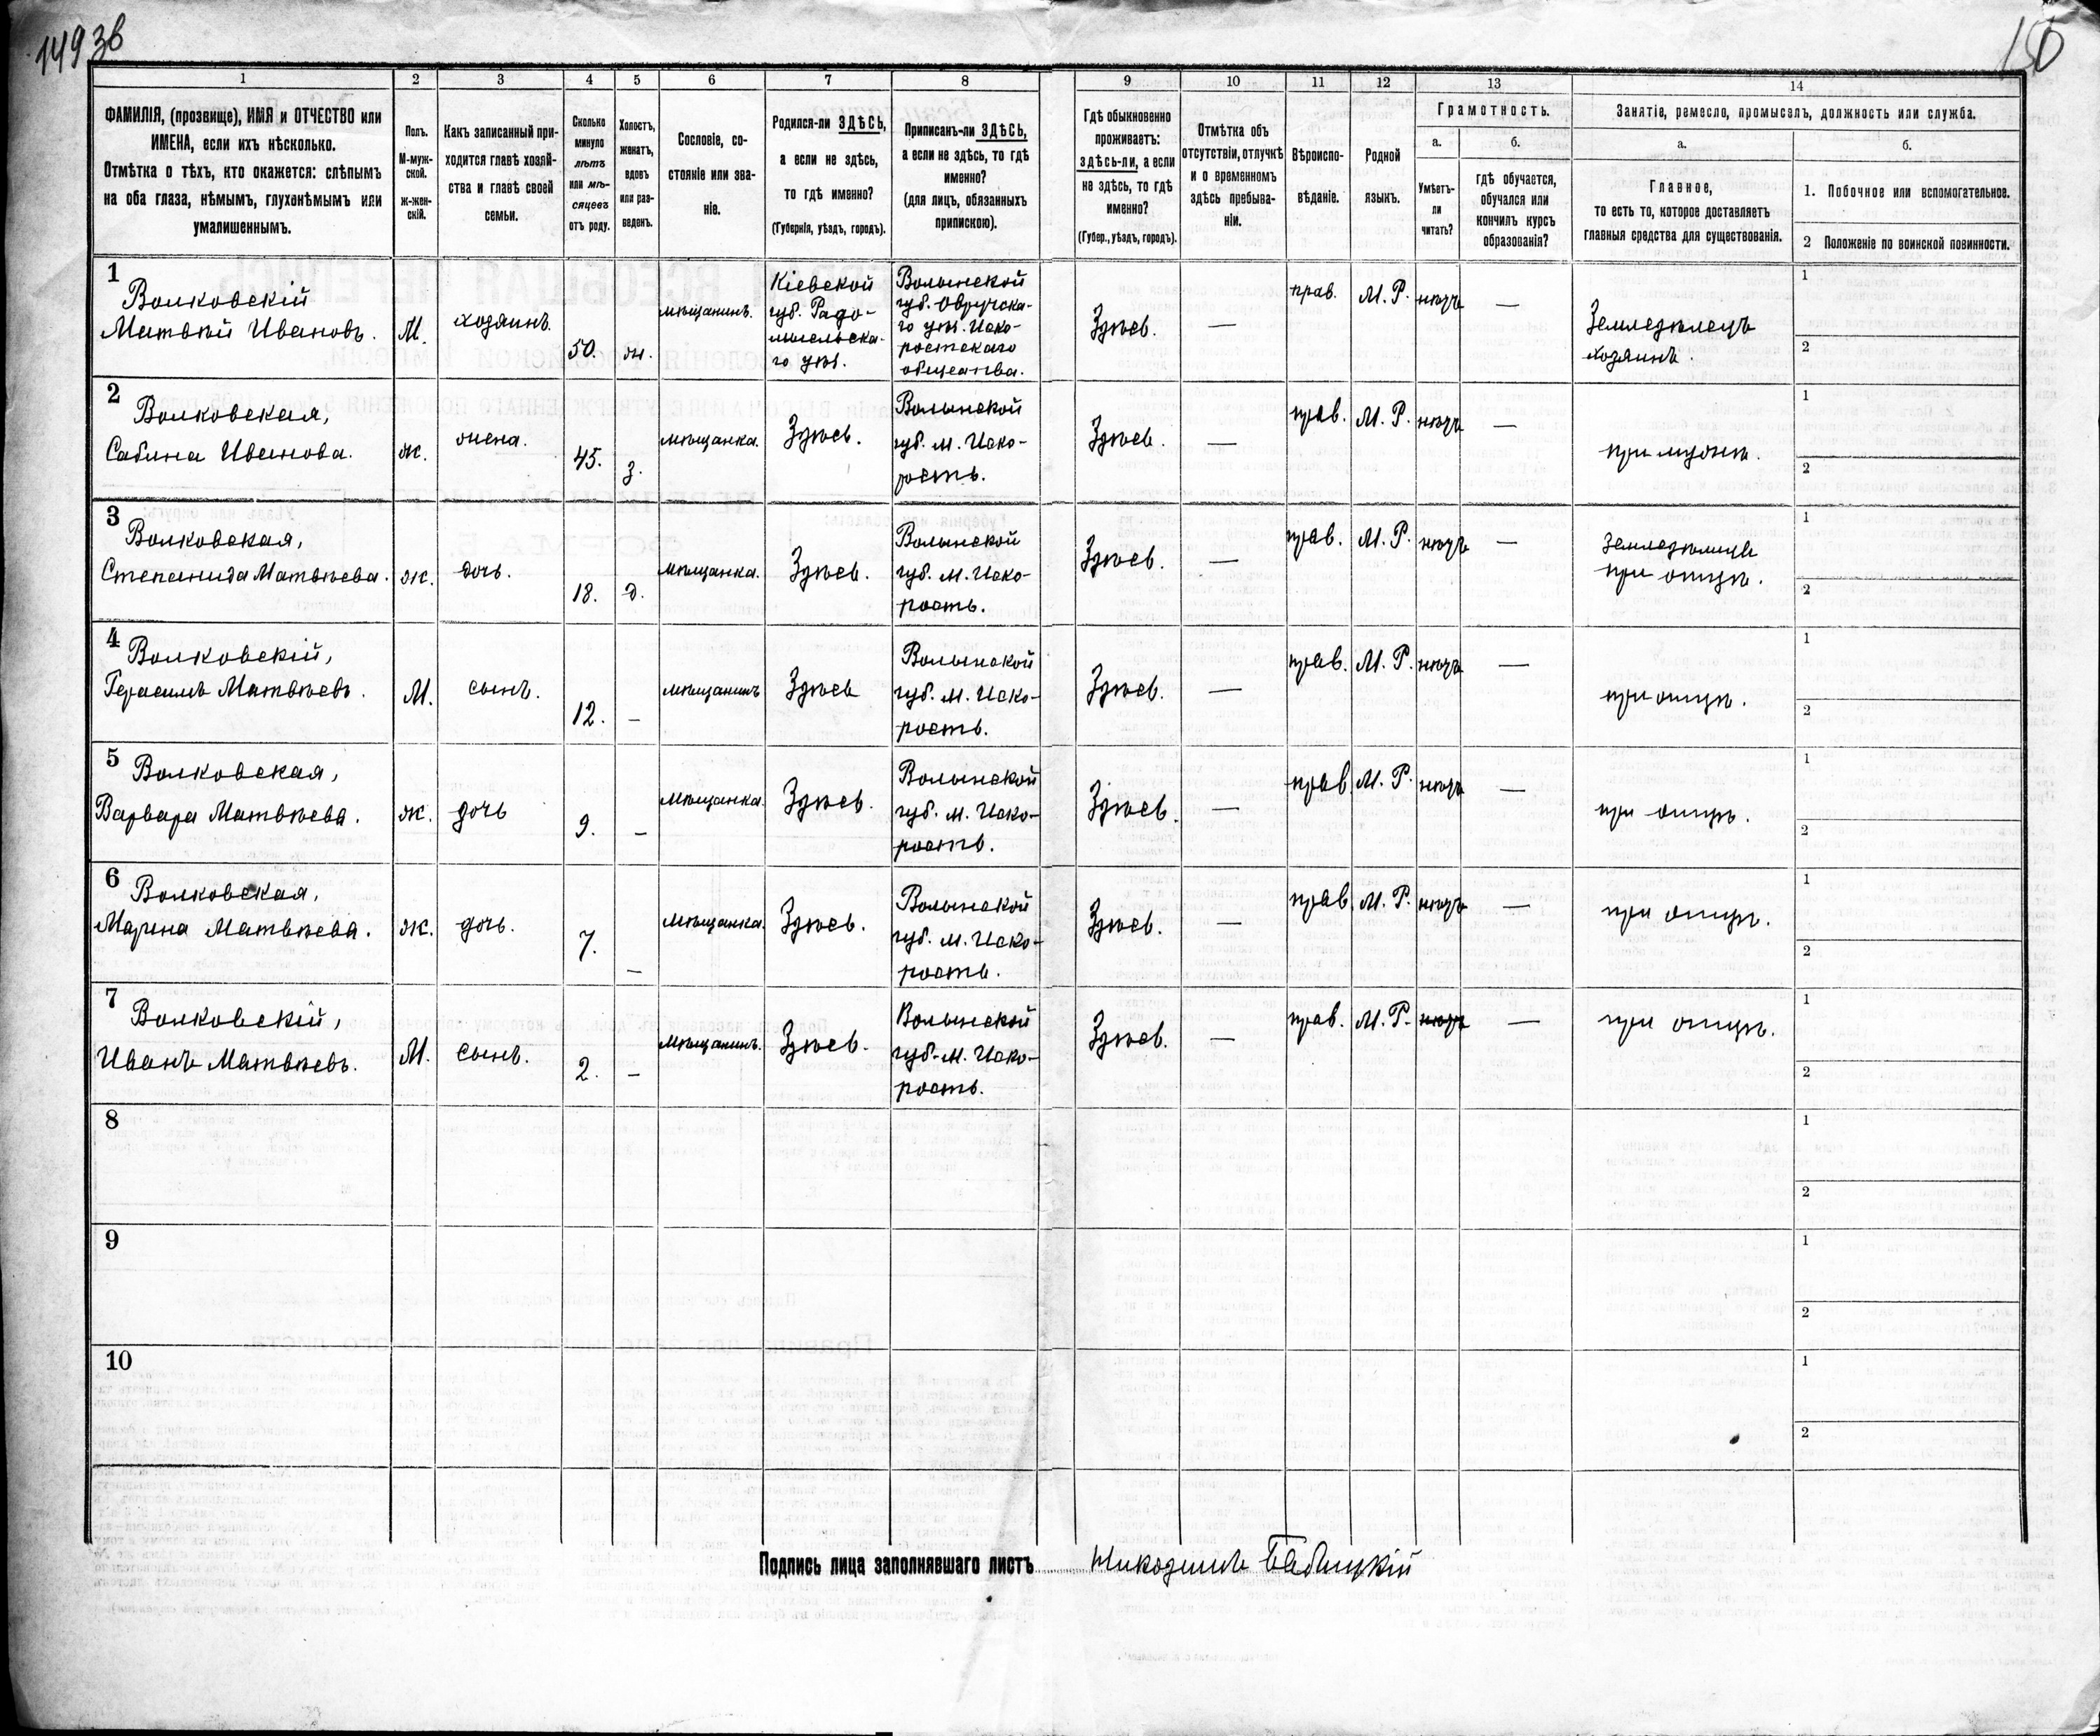 1493в
1 2 3 4 5 6 7 8 9 10 11 12 13 14
ФАМИЛІЯ, (прозвище), ИМЯ и ОТЧЕСТВО или
ИМЕНА, если ихъ нѣсколько.
Отмѣтка о тѣхъ, кто окажется: слѣпымъ
на оба глаза, нѣмымъ, глухонѣмымъ или
умалишеннымъ.
Полъ.
М-муж-
ской.
ж-жен-
скій.
Какъ записанный при-
ходится главѣ хозяй-
ства и главѣ своей
семьи.
Сколько
минуло
лѣтъ
или мѣ-
сяцевъ
отъ роду.
Холостъ,
женатъ,
вдовъ
или раз-
веденъ.
Сословіе, со-
стояніе или зва-
ніе.
Родился-ли ЗДѢСЬ,
а если не здѣсь,
то гдѣ именно?
(Губернія, уѣздъ, городъ).
Приписанъ-ли ЗДѢСЬ,
а если не здѣсь, то гдѣ
именно?
(для лицъ, обязанныхъ
припискою).
Гдѣ обыкновенно
проживаетъ:
здѣсь-ли, а если
не здѣсь, то гдѣ
именно?
(Губер., уѣздъ, городъ).
Отмѣтка объ
отсутствіи, отлучкѣ
и о временномъ
здѣсь пребыва-
ніи.
Вѣроиспо-
вѣданіе.
Родной
языкъ.
Грамотность.
а.
Умѣетъ-
ли
читать?
б.
гдѣ обучается,
обучался или
кончилъ курсъ
образованія?
Занятіе, ремесло, промыселъ, должность или служба.
а.
Главное,
то есть то, которое доставляетъ
главныя средства для существованія.
б.
1. Побочное или вспомогательное.
2 Положеніе по воинской повинности.
1
Волковскій
Матвѣй Ивановъ.
М.
хозяинъ.
50.
ж.
мѣщанинъ.
Кіевской
губ. Радо-
мысльска-
го уѣз.
Волынской
губ. Овручска-
го уѣз. Иско-
ростскаго
общества.
Здѣсь.
—
прав.
М. Р.
нѣтъ
—
Земледѣлецъ
хозяинъ.
1
2
2
Волковская,
Сабина Иванова.
ж.
жена.
45.
з.
мѣщанка.
Здѣсь.
Волынской
губ. м. Иско-
рость.
Здѣсь.
—
прав.
М. Р.
нѣтъ
—
при мужѣ.
1
2
3
Волковская,
Степанида Матвѣева.
ж.
дочь.
18.
д.
мѣщанка.
Здѣсь.
Волынской
губ. м. Иско-
рость.
Здѣсь.
—
прав.
М. Р.
нѣтъ
—
при отцѣ.
1
2
4
Волковскій,
Герасимъ Матвѣевъ.
М.
сынъ.
12.
–
мѣщанинъ
Здѣсь
Волынской
губ. м. Иско-
рость.
Здѣсь.
—
прав.
М. Р.
нѣтъ
—
при отцѣ.
1
2
5
Волковская,
Варвара Матвѣева.
ж.
дочь
9.
–
мѣщанка.
Здѣсь.
Волынской
губ. м. Иско-
рость.
Здѣсь.
—
прав.
М. Р.
нѣтъ
—
при отцѣ.
1
2
6
Волковская,
Марина Матвѣева.
ж.
дочь.
7.
–
мѣщанка.
Здѣсь.
Волынской
губ. м. Иско-
рость.
Здѣсь.
—
прав.
М. Р.
нѣтъ
—
при отцѣ.
1
2
7
Волковскій,
Иванъ Матвѣевъ.
М.
сынъ.
2.
–
мѣщанинъ.
Здѣсь.
Волынской
губ. м. Иско-
рость.
Здѣсь.
—
прав.
М. Р.
нѣтъ
—
при отцѣ.
1
2
8
1
2
9
1
2
10
1
2
Подпись лица заполнявшаго листъ Никодимъ Бабицкій